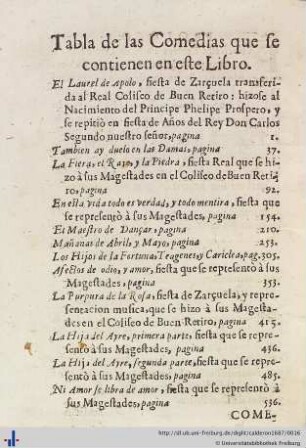 Tabla de las Comedias que se
contienen en este Libro.
El Laurel de Apolo, fiesta de Zarçuela transferi-
da al Real Coliseo de Buen Retiro: hizose al
Nacimiento del Principe Phelipe Prospero, y
se repitiò en fiesta de Años del Rey Don Carlos
Segundo nuestro señor, pagina 1.
Tambien ay duelo en las Damas, pagina 37.
La Fiera, el Rayo, y la Piedra, fiesta Real que se hi-
zo à sus Magestades en el Coliseo de Buen Reti-
ro, pagina 92.
En esta vida todo es verdad, y todo mentira, fiesta que
se representò à sus Magestades, pagina 154.
El Maestro de Dançar, pagina 210.
Mañanas de Abril, y Mayo, pagina 253.
Los Hijos de la Fortuna, Teagenes, y Cariclea, pag. 305.
Afectos de odio, y amor, fiesta que se representò à sus
Magestades, pagina 353.
La Purpura de la Rosa, fiesta de Zarçuela, y repre-
sentacion musica, que se hizo à sus Magesta-
des en el Coliseo de Buen-Retiro, pagina 415.
La Hija del Ayre, primera parte, fiesta que se repre-
sentò à sus Magestades, pagina 436.
La Hija del Ayre, segunda parte, fiesta que se repre-
sentò à sus Magestades, pagina 485.
Ni Amor se libra de amor, fiesta que se representò à
sus Magestades, pagina 536.
COME-
http://dl.ub.uni-freiburg.de/diglit/calderon1687/0016
© Universitätsbibliothek Freiburg